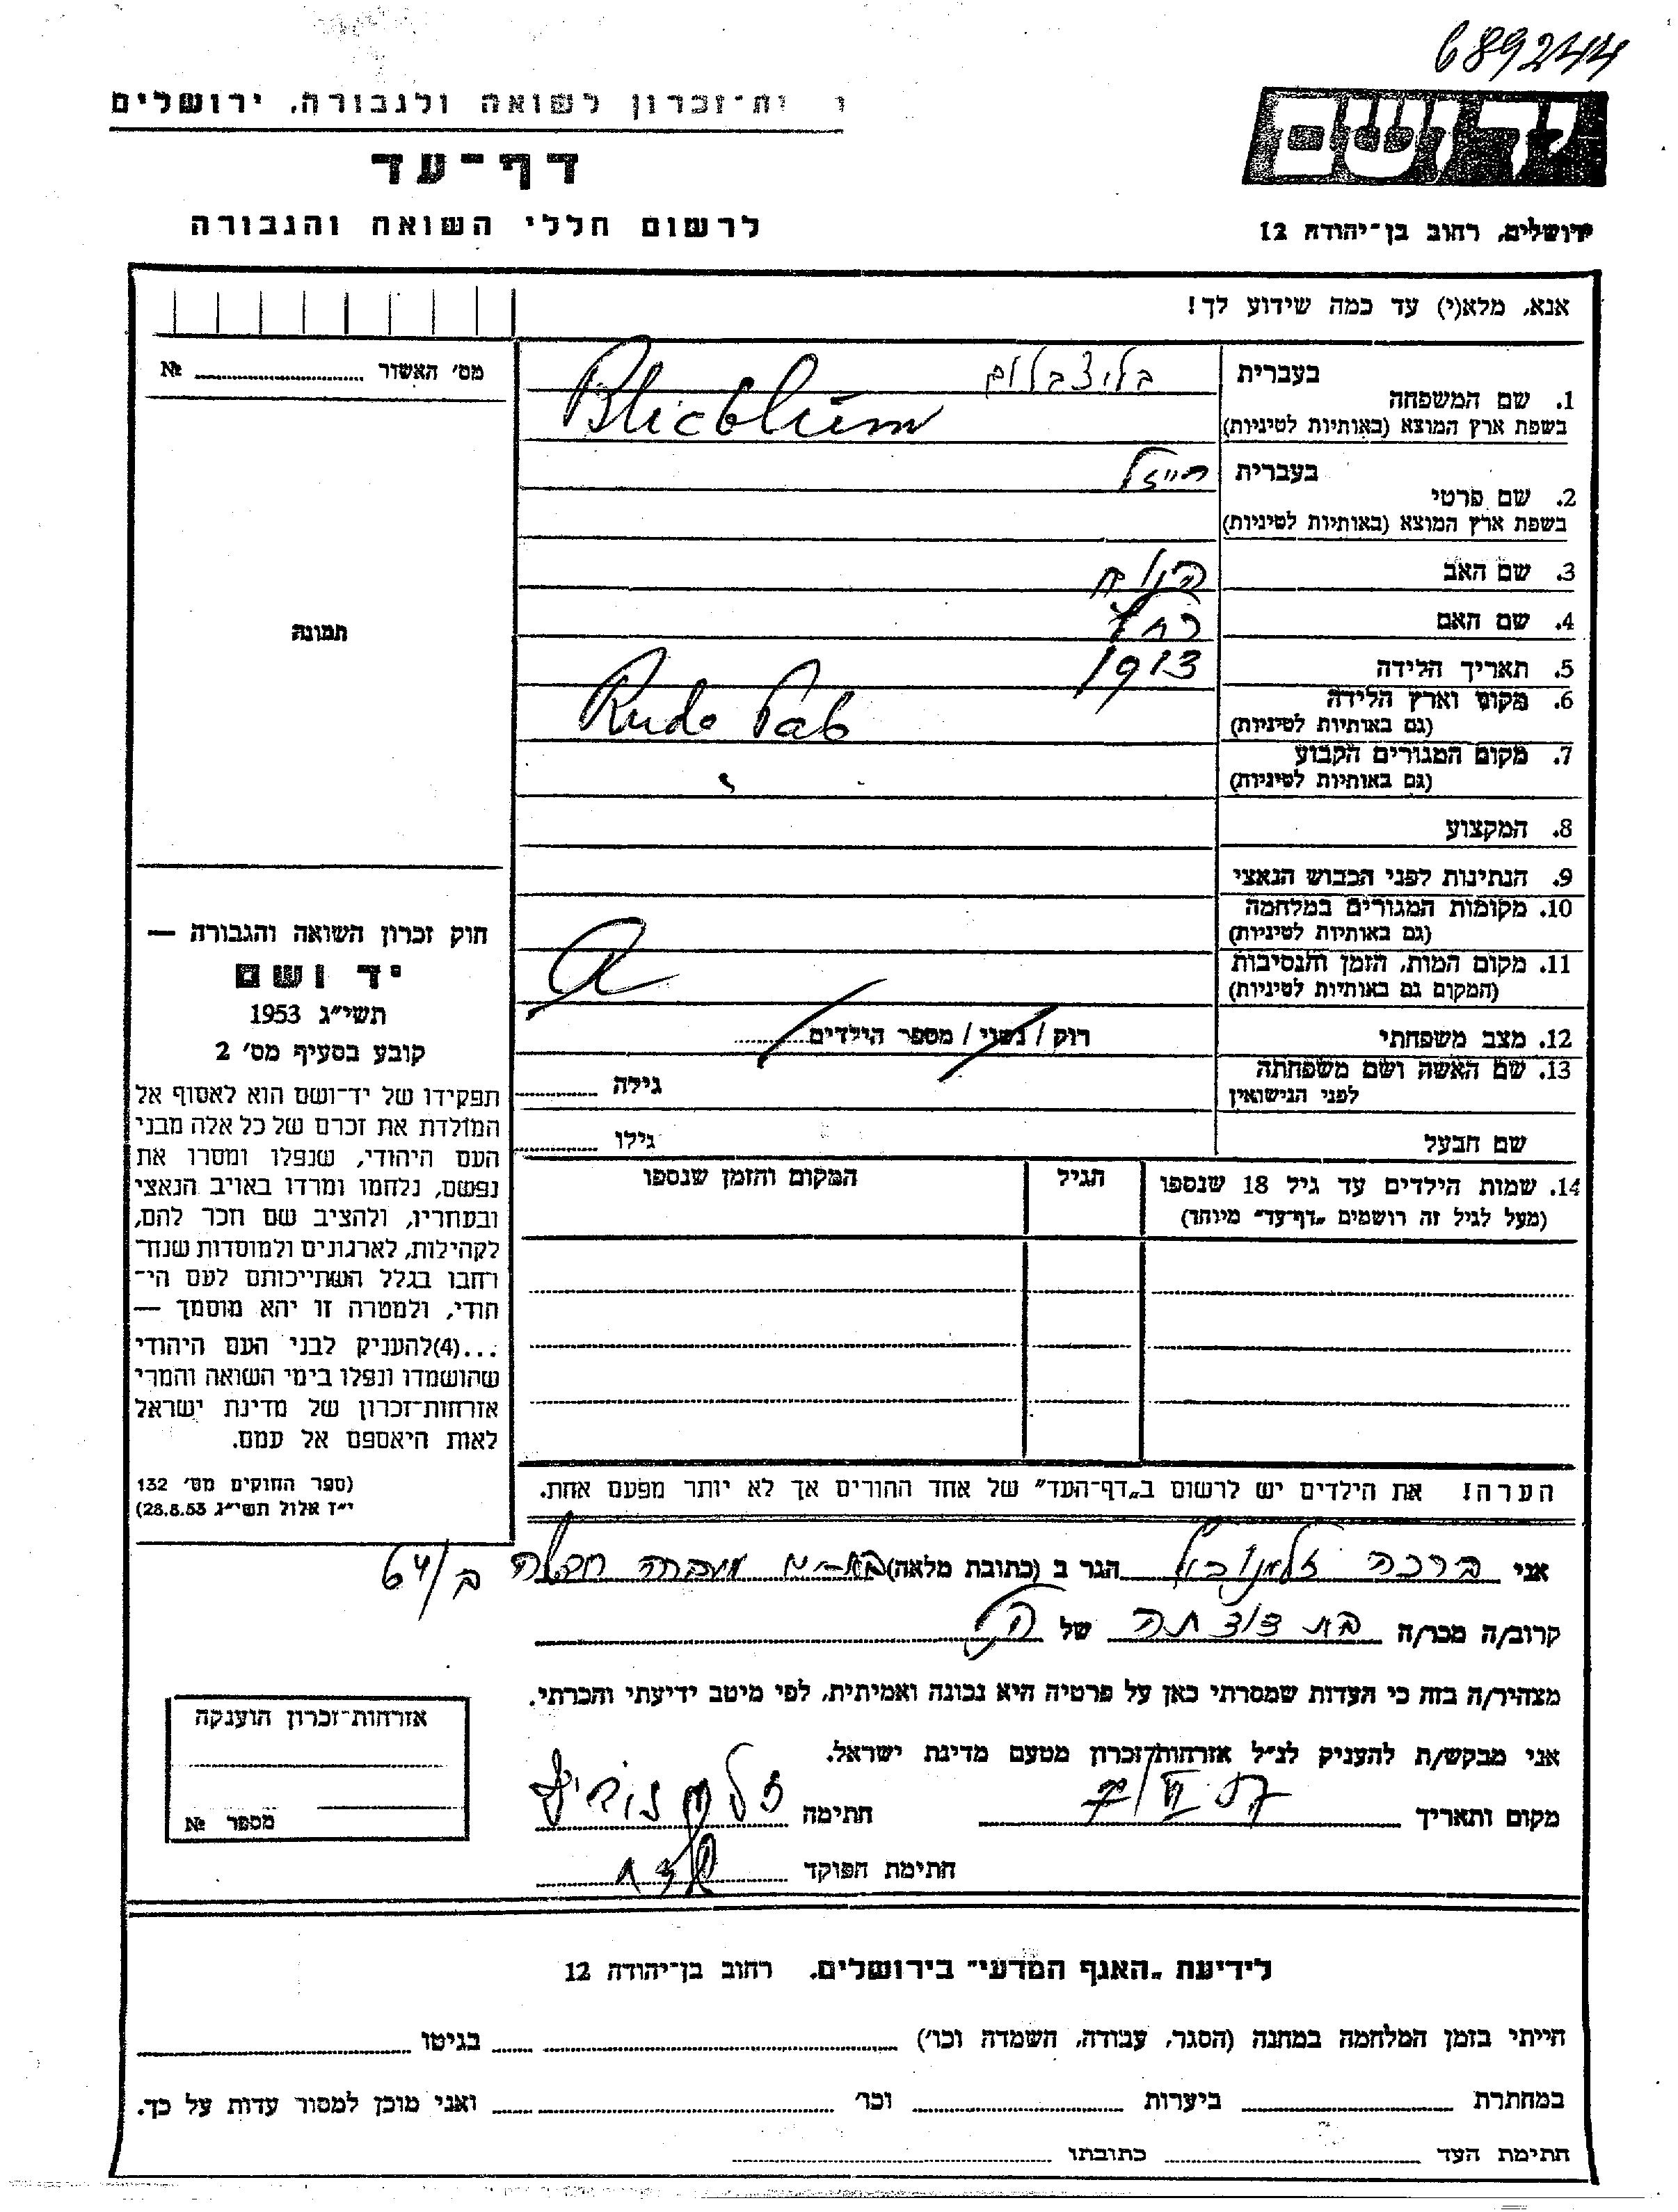 689244
ות־זכרון לשואה ולגבורה, ירושלים
דף־עד
לרשום חללי השואה והגבורה
יד ושם
ירושלים, רחוב בן־יהודה 12
אנא, מלא(י) עד כמה שידוע לך!
מס׳ האשור № 
בעברית בליצבלום
1. שם המשפחה
בשפת ארץ המוצא (באותיות לטיניות) Blicblum
בעברית
2. שם פרטי
בשפת ארץ המוצא (באותיות לטיניות)
3. שם האב
4. שם האם רחל
5. תאריך הלידה 1913
6. מקום וארץ הלידה
(גם באותיות לטיניות) Ruda Pab
7. מקום המגורים הקבוע
(גם באותיות לטיניות)
8. המקצוע
9. הנתינות לפני הכבוש הנאצי
10. מקומות המגורים במלחמה
(גם באותיות לטיניות)
11. מקום המות, הזמן והנסיבות
(המקום גם באותיות לטיניות)
12. מצב משפחתי רוק / נשוי / מספר הילדים
13. שם האשה ושם משפחתה
לפני הנישואין גילה
שם הבעל גילו
14. שמות הילדים עד גיל 18 שנספו הגיל המקום והזמן שנספו
(מעל לגיל זה רושמים „דף־עד״ מיוחד)
הערה! את הילדים יש לרשום ב„דף־העד״ של אחד ההורים אך לא יותר מפעם אחת.
תמונה
חוק זכרון השואה והגבורה —
יד ושם
תשי״ג 1953
קובע בסעיף מס׳ 2
תפקידו של יד־ושם הוא לאסוף אל
המולדת את זכרם של כל אלה מבני
העם היהודי, שנפלו ומסרו את
נפשם, נלחמו ומרדו באויב הנאצי
ובעוזריו, ולהציב שם וזכר להם,
לקהילות, לארגונים ולמוסדות שנח־
רבו בגלל השתייכותם לעם הי־
הודי, ולמטרה זו יהא מוסמך —
...(4)להעניק לבני העם היהודי
שהושמדו ונפלו בימי השואה והמרי
אזרחות־זכרון של מדינת ישראל
לאות היאספם אל עמם.
(ספר החוקים מס׳ 132
י״ז אלול תשי״ג 28.8.53)
אני ברכה הגר ב (כתובת מלאה)
קרוב/ה מכר/ה בת דודתה של הנ״ל
מצהיר/ה בזה כי העדות שמסרתי כאן על פרטיה היא נכונה ואמיתית, לפי מיטב ידיעתי והכרתי.
אני מבקש/ת להעניק לנ״ל אזרחות־זכרון מטעם מדינת ישראל.
מקום ותאריך חתימה
חתימת הפוקד
אזרחות־זכרון הוענקה
מספר №
לידיעת „האגף המדעי״ בירושלים. רחוב בן־יהודה 12
הייתי בזמן המלחמה במחנה (הסגר, עבודה, השמדה וכו׳) בגיטו
במחתרת ביערות וכו׳ ואני מוכן למסור עדות על כך.
חתימת העד כתובתו